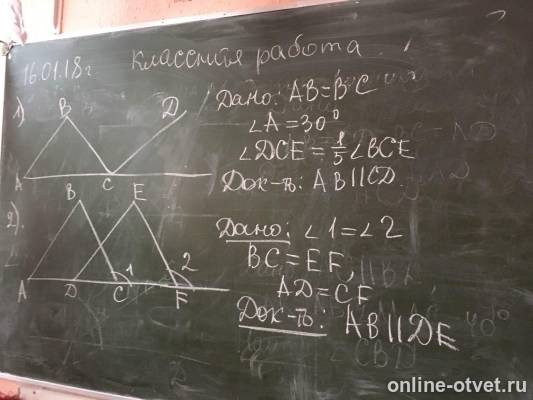 16.01.18г. Классная работа
1)
B D
A C
Дано: AB=BC
∠A=30°
∠DCE=1/5∠BCE
Док-ть: AB||CD
2)
B E
1 2
A D C F
Дано: ∠1=∠2
BC=EF,
AD=CF
Док-ть: AB||DE
online-otvet.ru